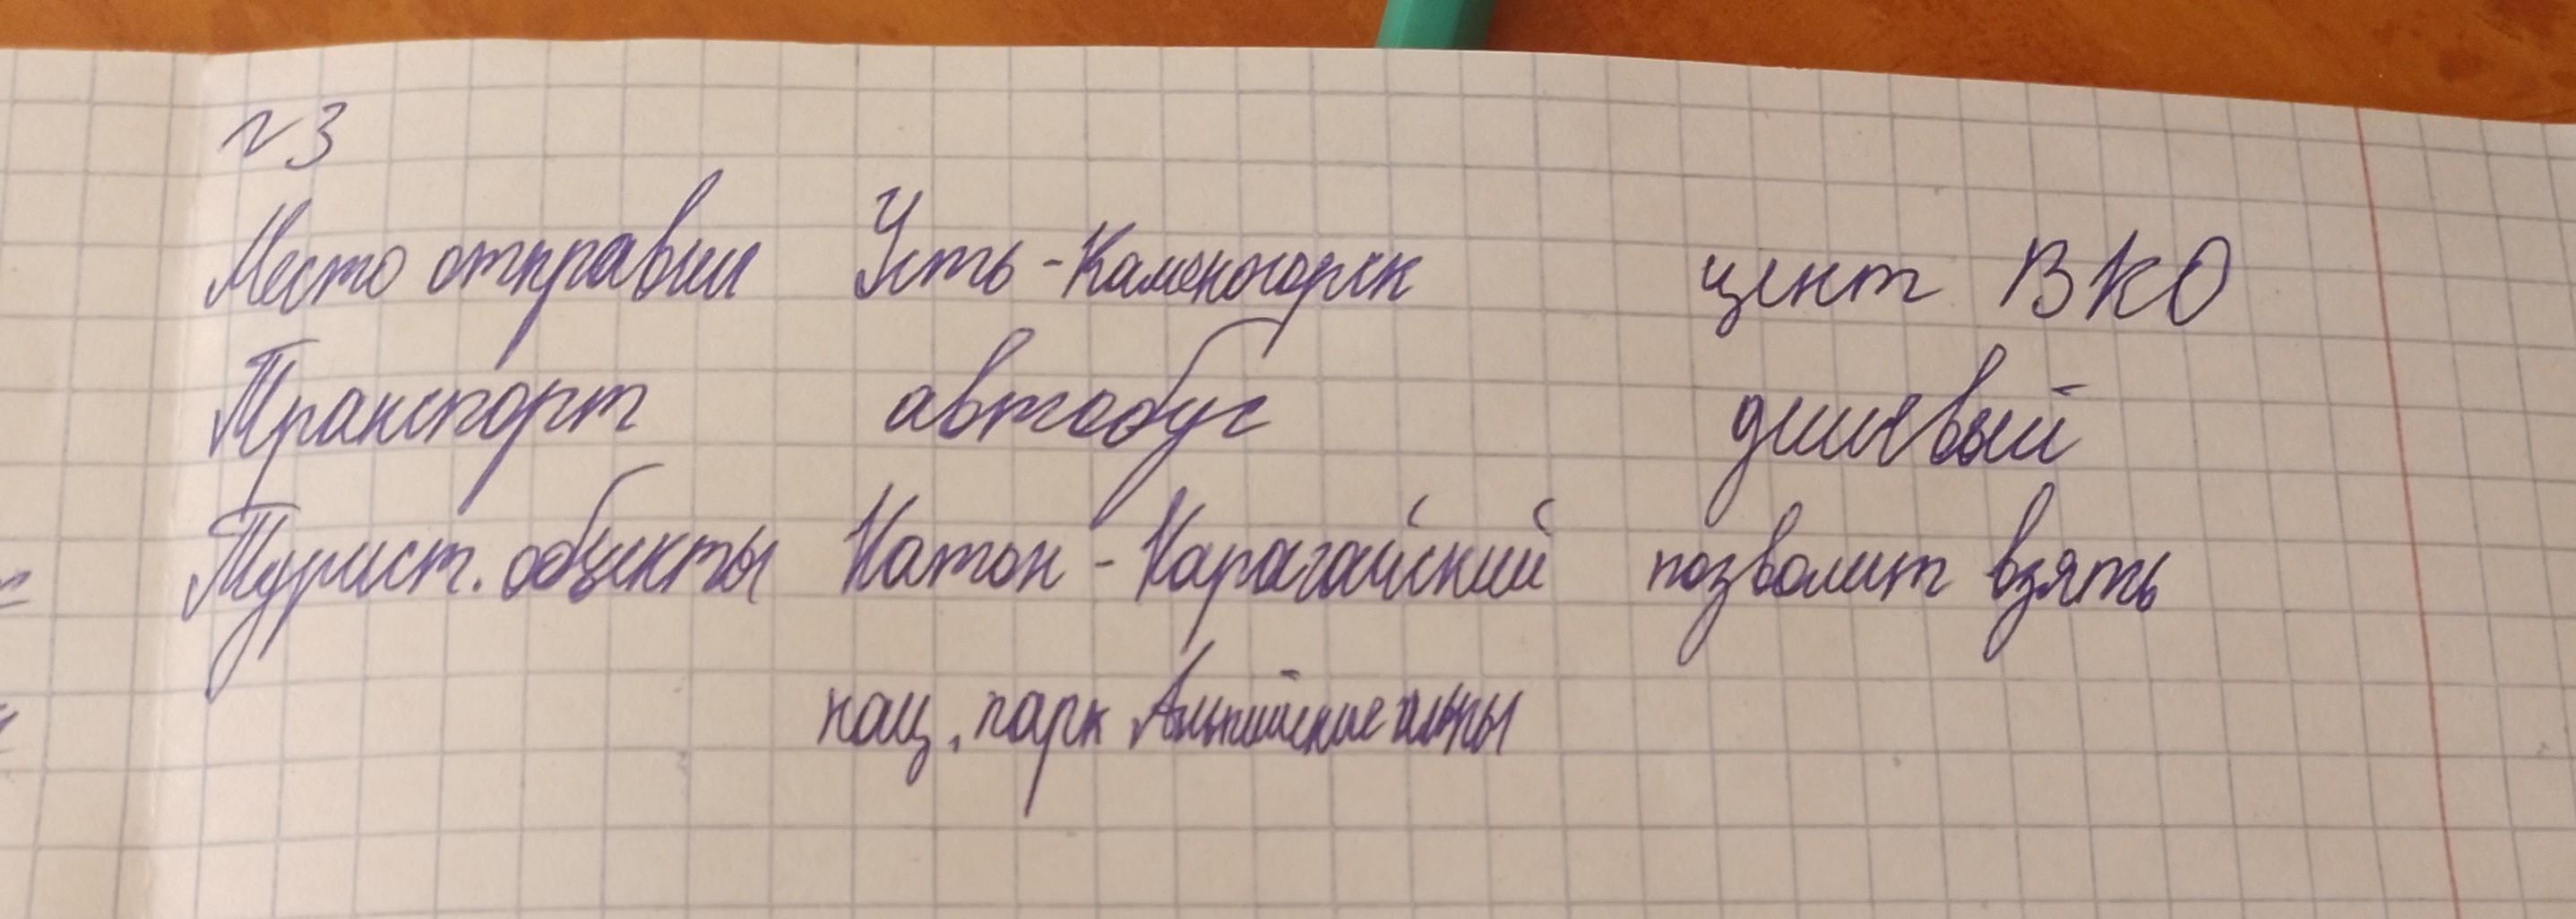 №3
Место отправки Усть-Каменогорск цент ВКО
Транспорт автобус дешевый
Турист. объекты Катон-Карагайский позволит взять
нац. парк Альпийские альпы